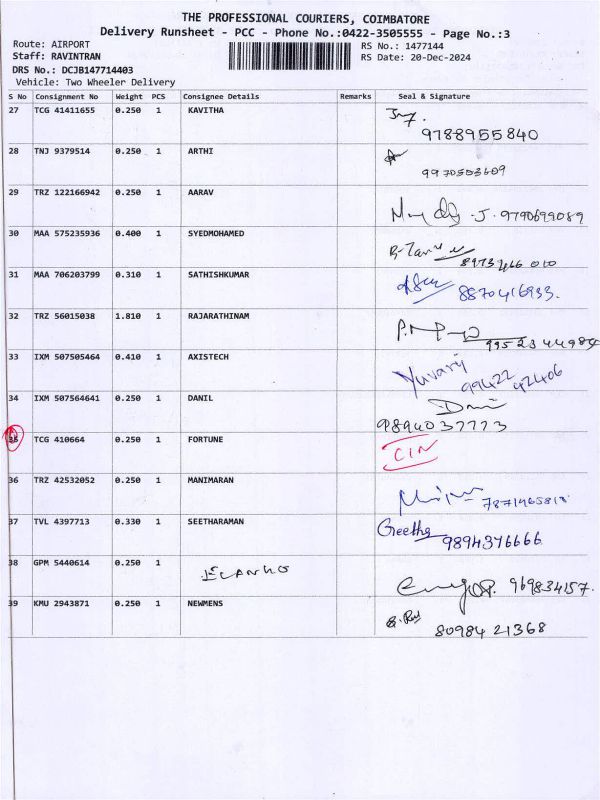 THE PROFESSIONAL COURIERS, COIMBATORE
Delivery Runsheet - PCC - Phone No.:0422-3505555 - Page No.:3
Route: AIRPORT
RS No.: 1477144
Staff: RAVINTRAN
RS Date: 20-Dec-2024
DRS No.: DCJB147714403
Vehicle: Two Wheeler Delivery
S No Consignment No Weight PCS Consignee Details Remarks Seal & Signature
27 TCG 41411655 0.250 1 KAVITHA
9788955840
28 TNJ 9379514 0.250 1 ARTHI
9970503609
29 TRZ 122166942 0.250 1 AARAV
J. 9790699089
30 MAA 575235936 0.400 1 SYEDMOHAMED
8973466 010
31 MAA 706203799 0.310 1 SATHISHKUMAR
8870416933.
32 TRZ 56015038 1.810 1 RAJARATHINAM
9952344984
33 IXM 507505464 0.410 1 AXISTECH
Yuvaraj
99422 42406
34 IXM 507564641 0.250 1 DANIL
9894037773
35 TCG 410664 0.250 1 FORTUNE CIN
36 TRZ 42532052 0.250 1 MANIMARAN
7871465818
37 TVL 4397713 0.330 1 SEETHARAMAN Geetha
9894376666
38 GPM 5440614 0.250 1 ELANKO
969834157.
39 KMU 2943871 0.250 1 NEWMENS
80984 21368